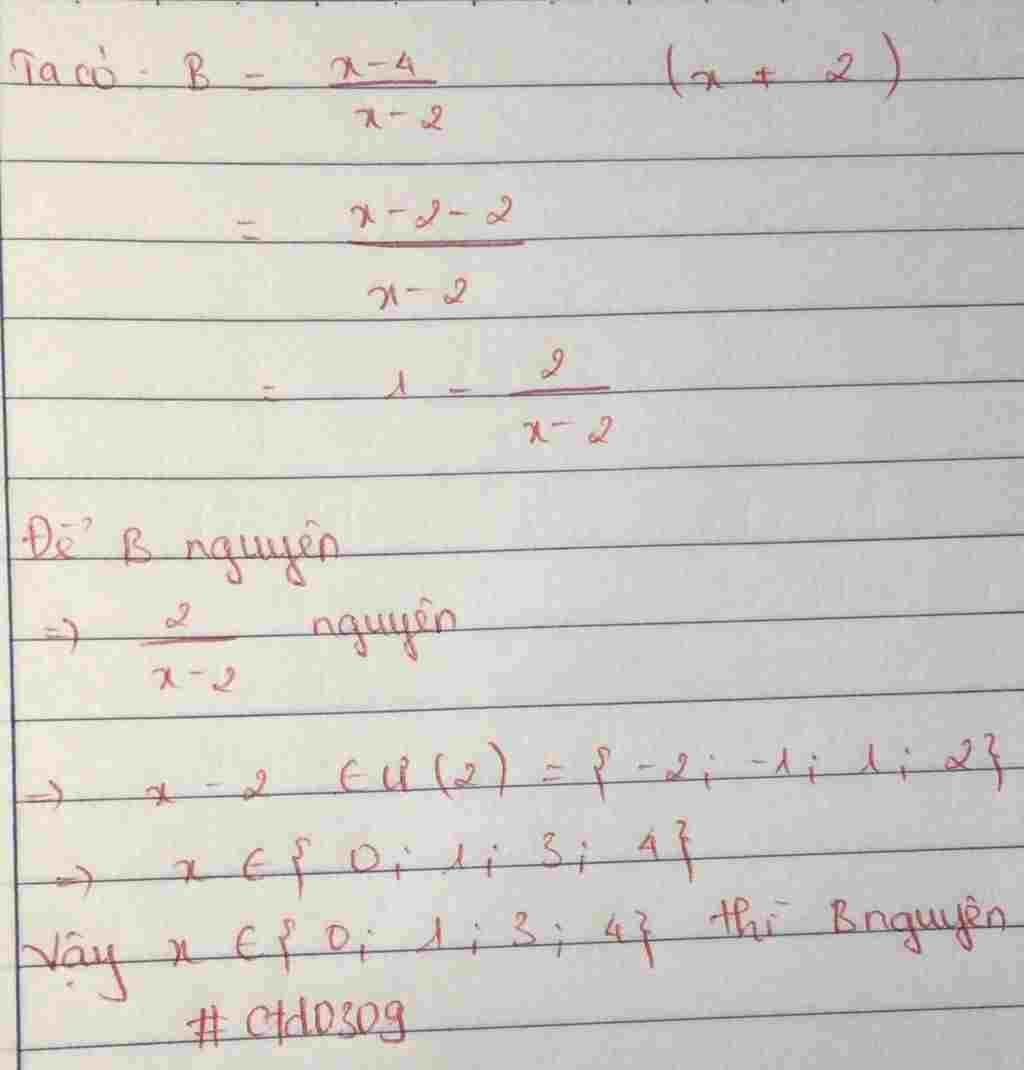 Ta có. B = x-4 / x-2 (x + 2)
= x-2-2 / x-2
= 1 - 2 / x-2
Để B nguyên
=> 2 / x-2 nguyên
=> x - 2 ∈ Ư(2) = { -2; -1; 1; 2}
=> x ∈ { 0; 1; 3; 4}
Vậy x ∈ { 0; 1; 3; 4} thì B nguyên